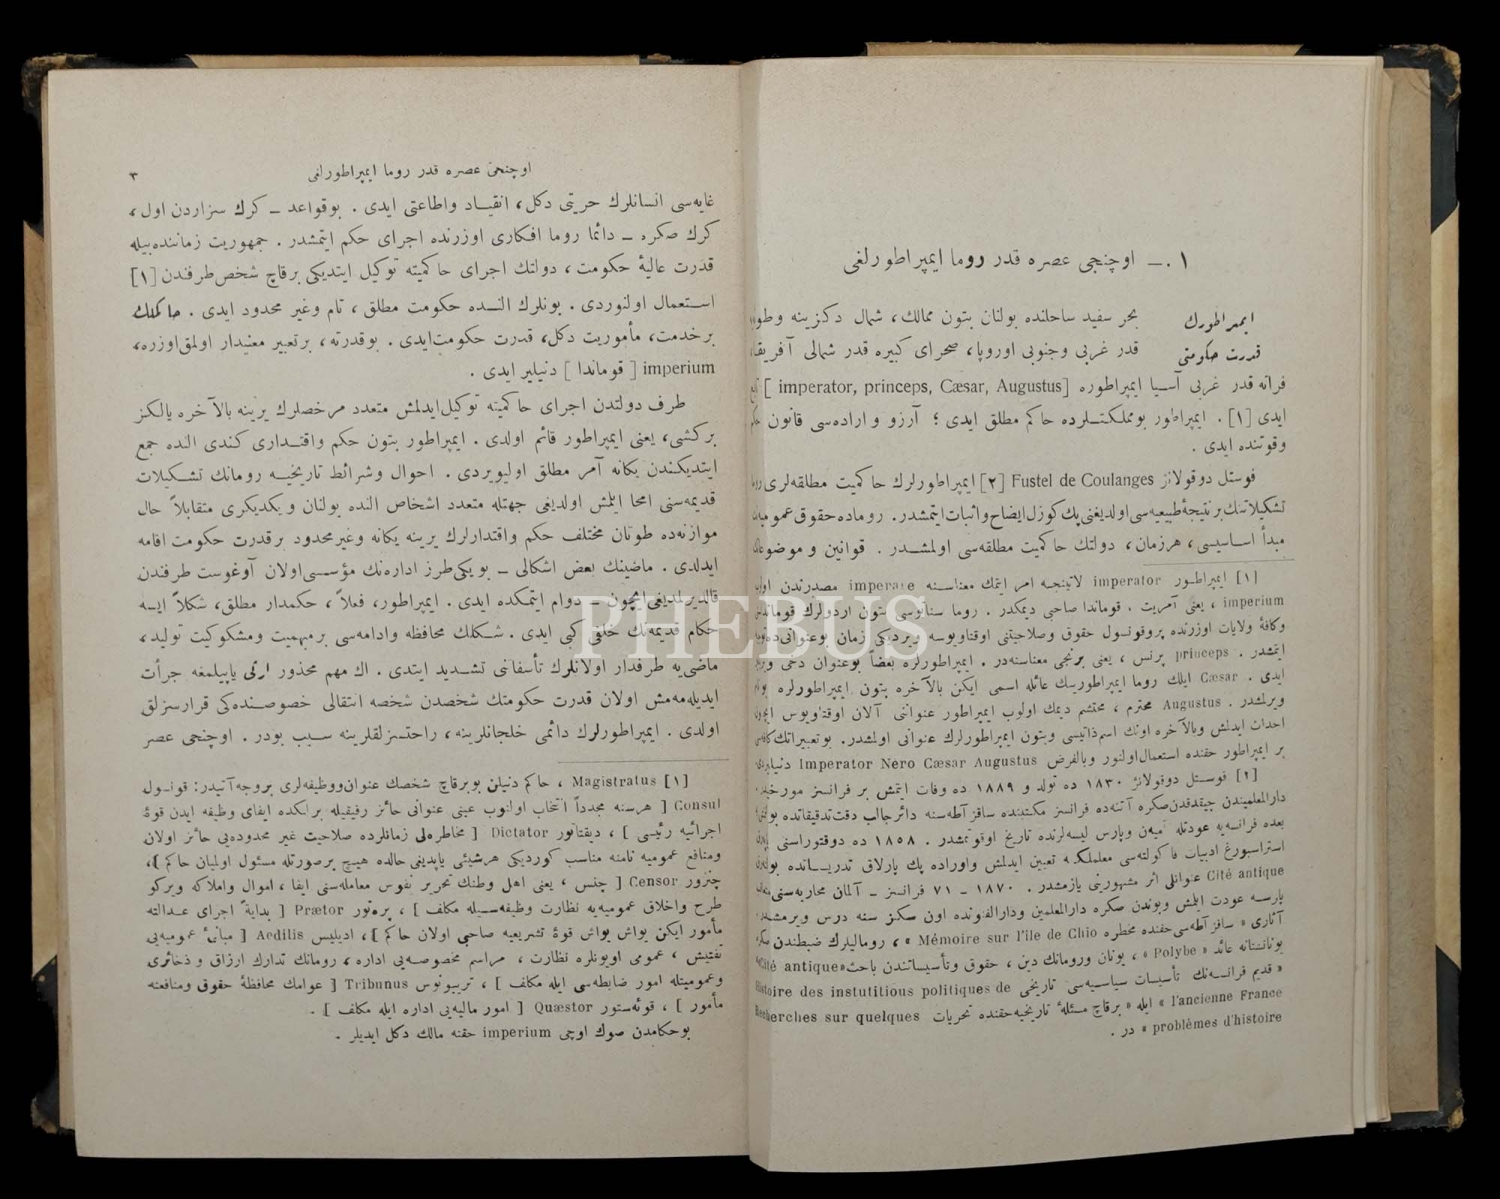 ۱ . — اوچنجی عصره قدر روما ایمپراطورلغی
ایمپراطورك
قدرت حكومتی
بحر سفید ساحلنده بولنان بتون ممالك، شمال دكزینه وطونه
قدر غربی وجنوبی اوروپا، صحرای كبیره قدر شمالی آفریقا،
فراته قدر غربی آسیا ایمپراطوره [imperator, princeps, Cæsar, Augustus]
ایدی [۱] . ایمپراطور بومملكتلرده حاكم مطلق ایدی ؛ آرزو و اراده‌سی قانون حكم
وقوتنده ایدی .
فوستل دوقولانژ Fustel de Coulanges [۲] ایمپراطورلرك حاكمیت مطلقه‌لری روما
تشكیلاتنك بر نتیجهٔ طبیعیه‌سی اولدیغنی پك كوزل ایضاح واثبات ایتمشدر. روماده حقوق عمومیه‌نك
مبدأ اساسیسی، هرزمان، دولتك حاكمیت مطلقه‌سی اولمشدر . قوانین و موضوعاتك
[۱] ایمپراطور imperator لاتینجه امر ایتمك معناسنه imperare مصدرندن اولوب
imperium ، یعنی آمریت ، قوماندا صاحبی دیمكدر . روما سناتوسی بتون اردولرك قومانداسی
وكافهٔ ولایات اوزرنده پروقونسول حقوق وصلاحیتنی اوقتاویوسه ویردیكی زمان بوعنوانی ده
ایتمشدر . princeps پرنس ، یعنی برنجی معناسنه‌در . ایمپراطورلره بعضاً بوعنوان دخی
ایدی . Cæsar ایلك روما ایمپراطورینك عائله اسمی ایكن بالآخره بتون ایمپراطورلره
ویرلمشدر . Augustus محترم ، محتشم دیمك اولوب ایمپراطور عنواننی آلان اوقتاویوس ایچون
احداث ایدلمش وبالآخره اونك اسم ذاتیسی وبتون ایمپراطورلرك عنوانی اولمشدر. بوتعبیراتك كافه‌سی
بر ایمپراطور حقنده استعمال اولنور وبالفرض Imperator Nero Cæsar Augustus
[۲] فوستل دوقولانژ ۱۸۳۰ ده تولد و ۱۸۸۹ ده وفات ایتمش بر فرانسز مورخیدر.
دارالمعلمیندن چیقدقدن صكره آتنه‌ده فرانسز مكتبنده ساقز آطه‌سنه دائر جالب دقت تدقیقاتده
بعده فرانسه‌یه عودتله آمیه‌ن وپارس لیسه‌لرنده تاریخ اوقوتمشدر . ۱۸۵۸ ده دوقتوراسنی
استراسبورغ ادبیات فاكولته‌سی معلملكنه تعیین ایدلمش واوراده پك پارلاق تدریساتده
Cité antique عنوانلی اثر مشهورینی یازمشدر . ۱۸۷۰ — ۷۱ فرانسز — آلمان محاربه‌سنی
پارسه عودت ایلمش وبوندن صكره دارالمعلمین ودارالفنونده اون سكز سنه درس ویرمشدر.
آثاری « ساقز آطه‌سی حقنده مخطره Mémoire sur l'ile de Chio »، رومالیلرك ضبطندن
یونانستانه عائد « Polybe » ، یونان ورومانك دین ، حقوق وتأسیساتندن باحث «Cité antique»
« قدیم فرانسه‌نك تأسیسات سیاسیه‌سی تاریخی Histoire des instutitious politiques de
l'ancienne France » ایله « برقاچ مسئلهٔ تاریخیه حقنده تحریات Recherches sur quelques
problèmes d'histoire » در .
اوچنجی عصره قدر روما ایمپراطورلغی ۳
غایه‌سی انسانلرك حریتی دكل، انقیاد واطاعتی ایدی . بوقواعد — كرك سزاردن اول،
كرك صكره — دائما روما افكاری اوزرنده اجرای حكم ایتمشدر . جمهوریت زماننده بیله
قدرت عالیهٔ حكومت، دولتك اجرای حاكمیته توكیل ایتدیكی برقاچ شخص طرفندن [۱]
استعمال اولنوردی . بونلرك النده حكومت مطلق ، تام وغیر محدود ایدی . حاكملك
برخدمت، مأموریت دكل، قدرت حكومت ایدی. بوقدرته، برتعبیر معنیدار اولمق اوزره،
imperium [ قوماندا ] دنیلیر ایدی .
طرف دولتدن اجرای حاكمیته توكیل ایدلمش متعدد مرخصلرك یرینه بالآخره یالكز
بركشی، یعنی ایمپراطور قائم اولدی . ایمپراطور بتون حكم واقتداری كندی النده جمع
ایتدیكندن یكانه آمر مطلق اولیویردی . احوال وشرائط تاریخیه رومانك تشكیلات
قدیمه‌سنی امحا ایلمش اولدیغی جهتله متعدد اشخاص النده بولنان ویكدیكری متقابلاً حال
موازنه‌ده طوتان مختلف حكم واقتدارلرك یرینه یكانه وغیر محدود برقدرت حكومت اقامه
ایدلدی . ماضینك بعض اشكالی — بویكی طرز اداره‌نك مؤسسی اولان آوغوست طرفندن
قالدیرلمدیغی ایچون — دوام ایتمكده ایدی . ایمپراطور، فعلاً ، حكمدار مطلق، شكلاً ایسه
حكام قدیمه‌نك خلفی كبی ایدی . شكلك محافظه وادامه‌سی برمبهمیت ومشكوكیت تولید،
ماضی‌یه طرفدار اولانلرك تأسفاتنی تشدید ایتدی . اك مهم محذور ارثی یاپیلمغه جرأت
ایدیله‌مه‌مش اولان قدرت حكومتك شخصدن شخصه انتقالی خصوصنده‌كی قرارسزلق
اولدی . ایمپراطورلرك دائمی خلجانلرینه، راحتسزلقلرینه سبب بودر . اوچنجی عصر
[۱] Magistratus ، حاكم دنیلن بوبرقاچ شخصك عنوان ووظیفه‌لری بروجه آتیدر: قونسول
Consul [ هرسنه مجدداً انتخاب اولنوب عینی عنوانی حائز رفیقیله برلكده ایفای وظیفه ایدن قوهٔ
اجرائیه رئیسی ] ، دیقتاتور Dictator [ مخاطره‌لی زمانلرده صلاحیت غیر محدوده‌یی حائز اولان
ومنافع عمومیه نامنه مناسب كوردیكی هرشیئی یاپدیغی حالده هیچ برصورتله مسئول اولمیان حاكم ]،
چنزور Censor [ چنس ، یعنی اهل وطنك تحریر نفوس معامله‌سنی ایفا ، اموال واملاكه ویركو
طرح واخلاق عمومیه‌یه نظارت وظیفه‌سیله مكلف ] ، پره‌تور Prætor [ بدایةً اجرای عدالته
مأمور ایكن یواش یواش قوهٔ تشریعیه صاحبی اولان حاكم ]، ادیلیس Aedilis [ مبانیٔ عمومیه‌یی
تفتیش ، عمومی اویونلره نظارت ، مراسم مخصوصه‌یی اداره ، رومانك تدارك ارزاق و ذخائری
وعمومیتله امور ضابطه‌سی ایله مكلف ] ، تریبونوس Tribunus [ عوامك محافظهٔ حقوق ومنافعنه
مأمور ] ، قوئه‌ستور Quæstor [ امور مالیه‌یی اداره ایله مكلف ] .
بوحكامدن صوك اوچی imperium حقنه مالك دكل ایدیلر .
PHEBUS